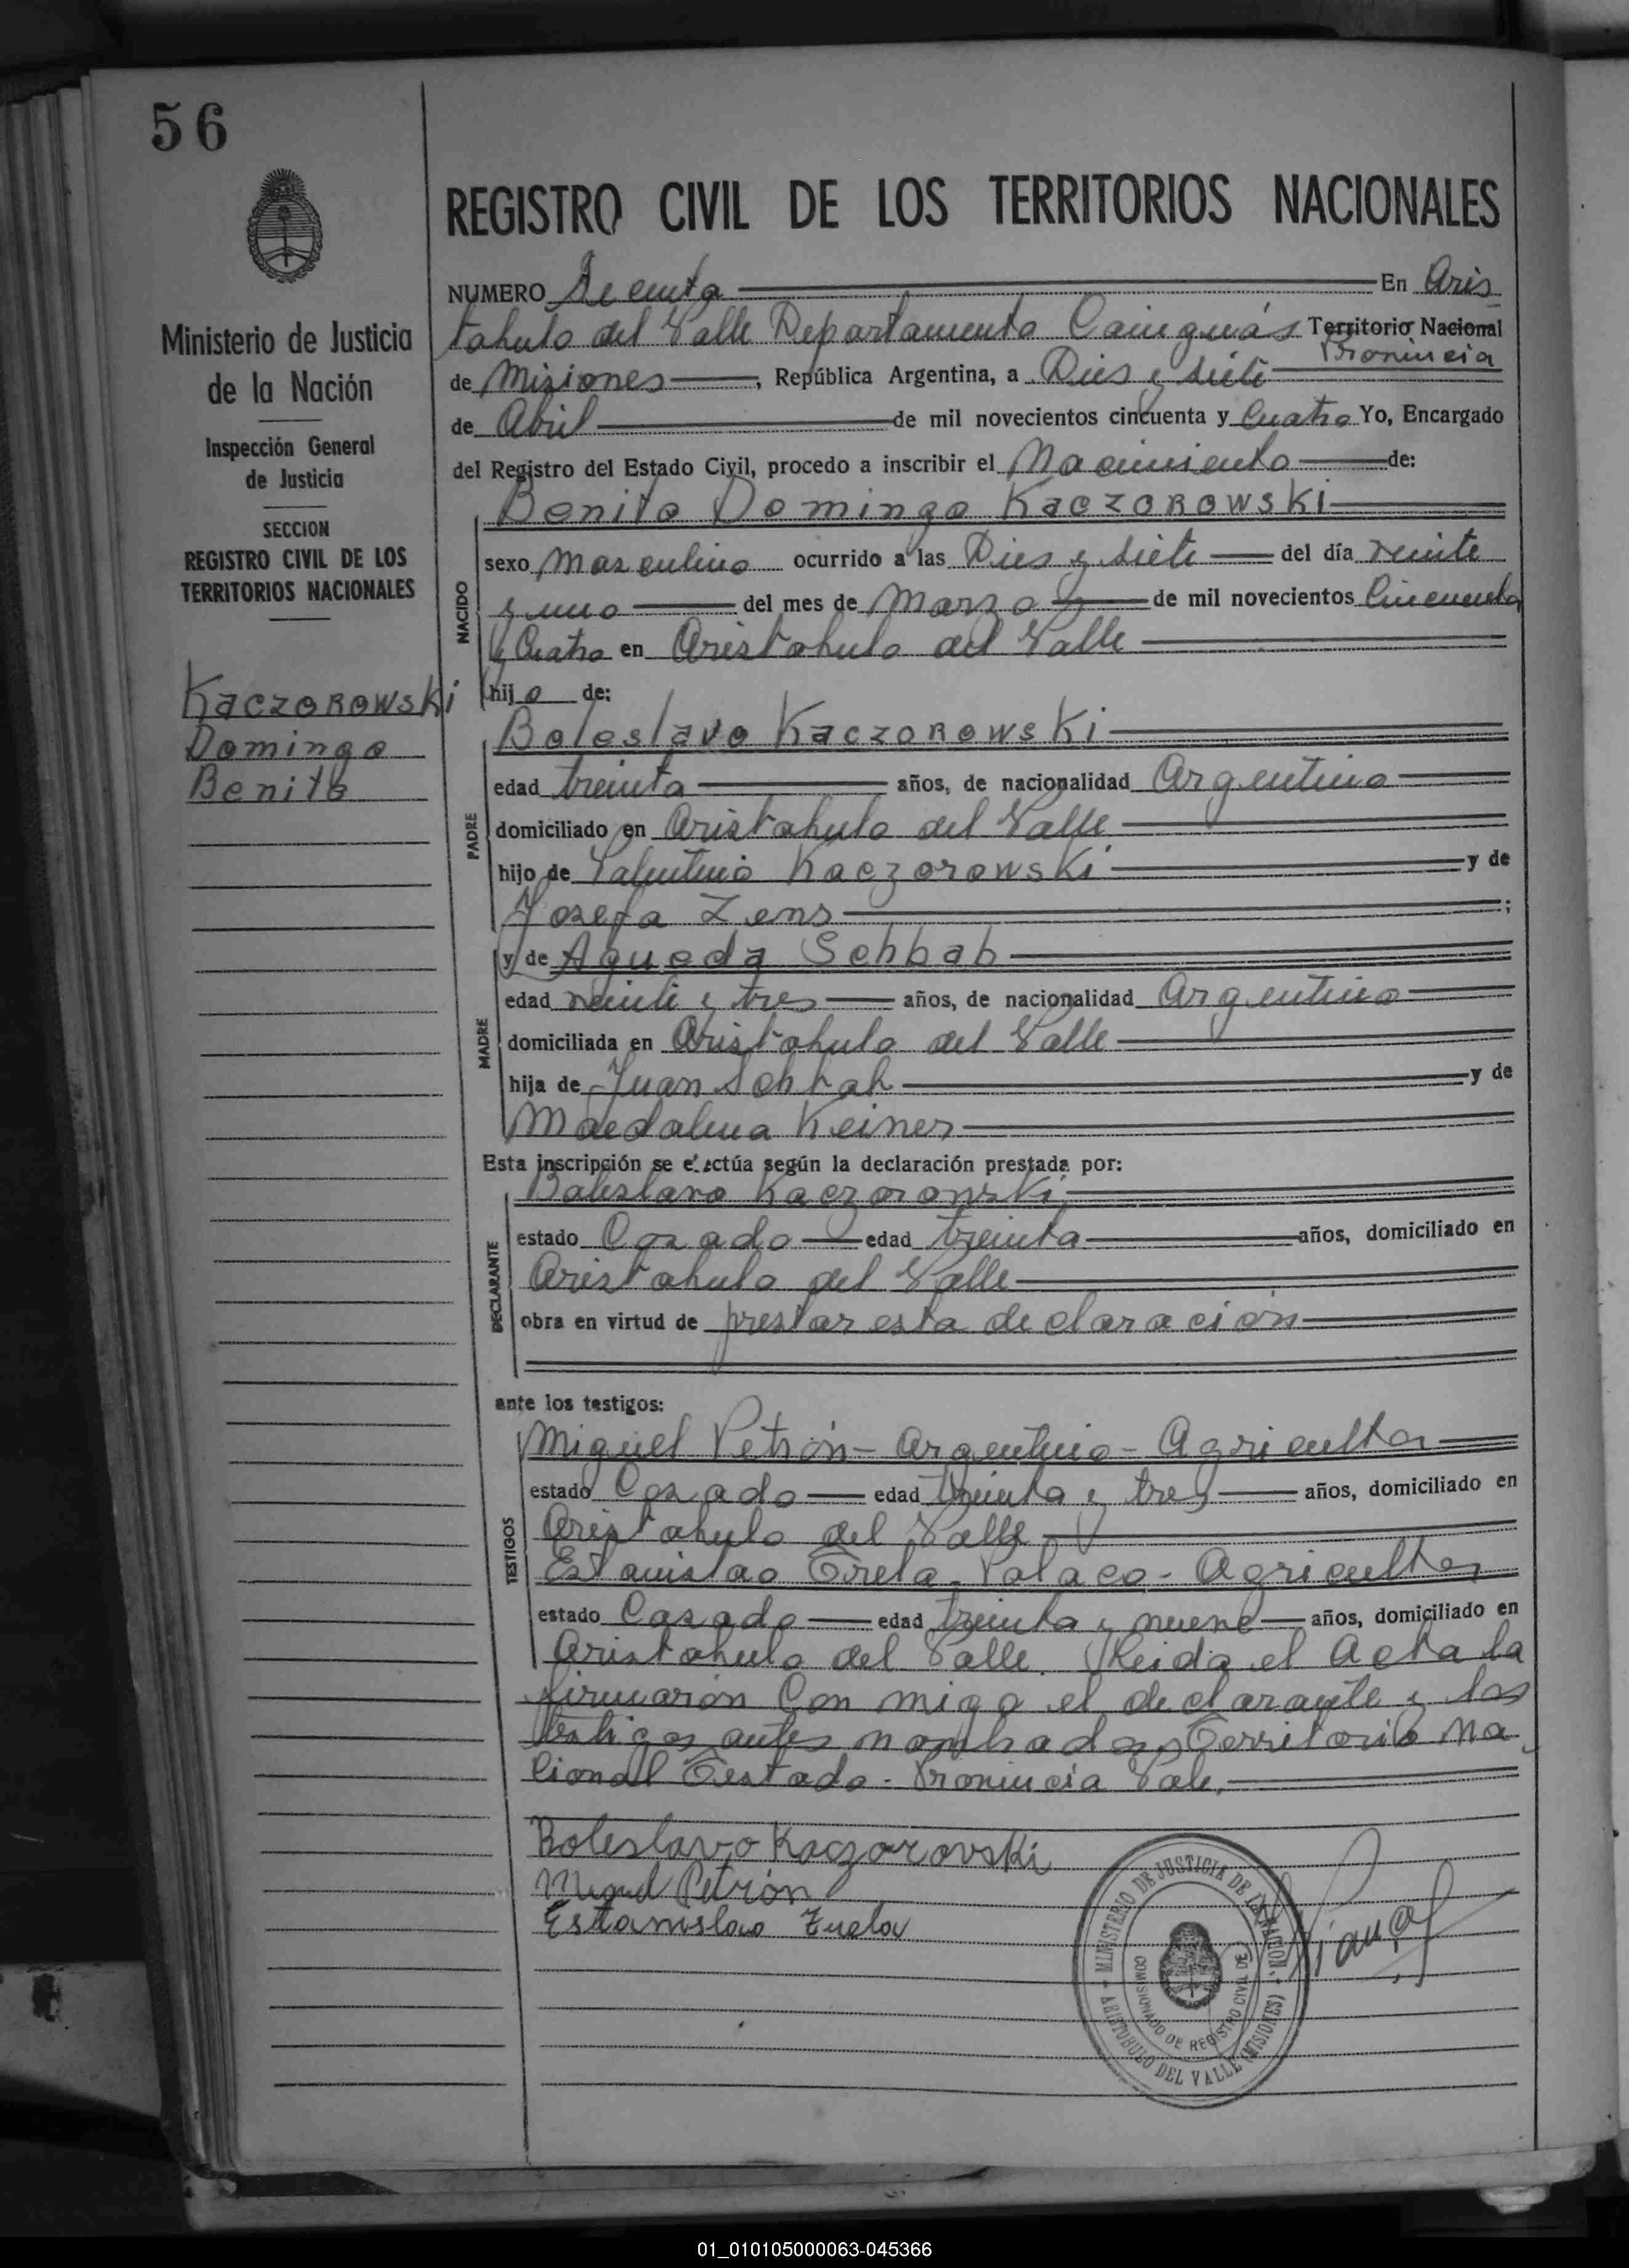 56
Ministerio de Justicia
de la Nación
Inspección General
de Justicia
SECCION
REGISTRO CIVIL DE LOS
TERRITORIOS NACIONALES
Kaczorowski
Domingo
Benito
REGISTRO CIVIL DE LOS TERRITORIOS NACIONALES
NUMERO En Aris
tobulo del Valle Departamento Cainguás Territorio Nacional
Provincia
de Misiones, República Argentina, a Dies y siete
de Abril de mil novecientos cincuenta y Cuatro Yo, Encargado
del Registro del Estado Civil, procedo a inscribir el Nacimiento de:
Benito Domingo Kaczorowski
NACIDO
sexo masculino ocurrido a las Dies y siete del día veinte
y uno del mes de Marzo de mil novecientos Cincuenta
y Cuatro en Aristobulo del Valle
hijo de:
PADRE
Boleslavo Kaczorowski
edad treinta años, de nacionalidad Argentino
domiciliado en Aristobulo del Valle
hijo de Valentino Kaczorowski y de
Josefa Zens;
MADRE
y de Agueda Schbab
edad veinti y tres años, de nacionalidad Argentina
domiciliada en Aristobulo del Valle
hija de Juan Schbab y de
Magdalena Keiner
Esta inscripción se efectúa según la declaración prestada por:
DECLARANTE
Boleslavo Kaczorowski
estado Casado edad treinta años, domiciliado en
Aristobulo del Valle
obra en virtud de prestar esta declaración
ante los testigos:
TESTIGOS
Miguel Petrón - Argentino - Agricultor
estado Casado edad treinta y tres años, domiciliado en
Aristobulo del Valle
Estanislao - Polaco - Agricultor
estado Casado edad treinta y nueve años, domiciliado en
Aristobulo del Valle. Leida el Acta la
firmarón Con migo el declarante y los
testigos antes nombrados, Territorio Na
cional Testado - Provincia Vale.
Boleslavo Kaczorovski
Miguel Petrón
Estanislao
MINISTERIO DE JUSTICIA DE LA NACION - ARISTOBULO DEL VALLE (MISIONES)
COMISIONADO DE REGISTRO CIVIL DE
01_010105000063-045366